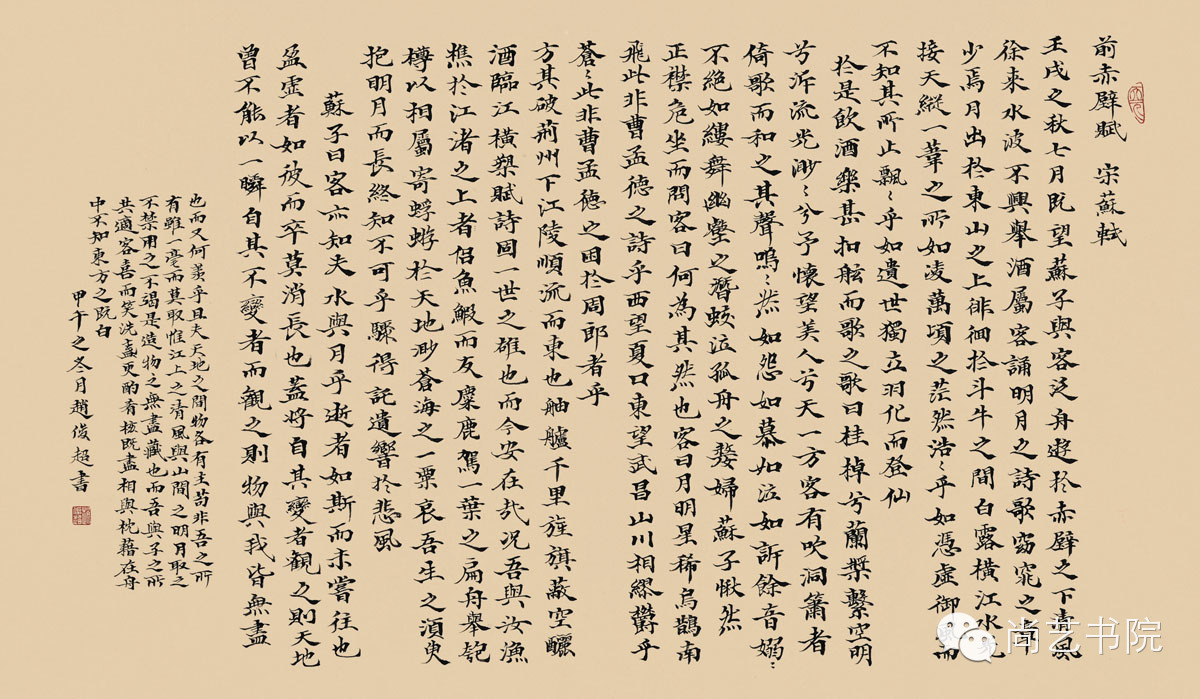 前赤壁賦 宋蘇軾
壬戌之秋七月既望蘇子與客泛舟遊於赤壁之下清風
徐來水波不興舉酒屬客誦明月之詩歌窈窕之章
少焉月出於東山之上徘徊於斗牛之間白露橫江水光
接天縱一葦之所如凌萬頃之茫然浩〻乎如憑虛御風而
不知其所止飄〻乎如遺世獨立羽化而登仙
於是飲酒樂甚扣舷而歌之歌曰桂棹兮蘭槳擊空明
兮泝流光渺〻兮予懷望美人兮天一方客有吹洞簫者
倚歌而和之其聲嗚〻然如怨如慕如泣如訴餘音嫋〻
不絕如縷舞幽壑之潛蛟泣孤舟之嫠婦蘇子愀然
正襟危坐而問客曰何為其然也客曰月明星稀烏鵲南
飛此非曹孟德之詩乎西望夏口東望武昌山川相繆鬱乎
蒼〻此非曹孟德之困於周郎者乎
方其破荊州下江陵順流而東也舳艫千里旌旗蔽空釃
酒臨江橫槊賦詩固一世之雄也而今安在哉況吾與汝漁
樵於江渚之上者侶魚鰕而友麋鹿駕一葉之扁舟舉匏
樽以相屬寄蜉蝣於天地渺蒼海之一粟哀吾生之須臾
抱明月而長終知不可乎驟得託遺響於悲風
蘇子曰客亦知夫水與月乎逝者如斯而未嘗往也
盈虛者如彼而卒莫消長也蓋將自其變者觀之則天地
曾不能以一瞬自其不變者而觀之則物與我皆無盡
也而又何羨乎且夫天地之間物各有主苟非吾之所
有雖一毫而莫取惟江上之清風與山間之明月取之
不禁用之不竭是造物之無盡藏也而吾與子之所
共適客喜而笑洗盞更酌肴核既盡相與枕藉在舟
中不知東方之既白
甲午之冬月趙俊超書
尚艺书院